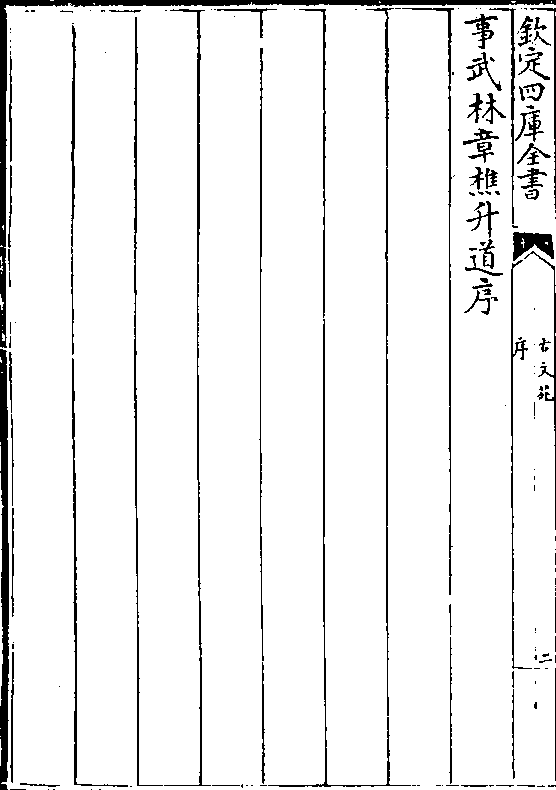 欽定四庫全書
古文苑
序
二
事武林章樵升道序